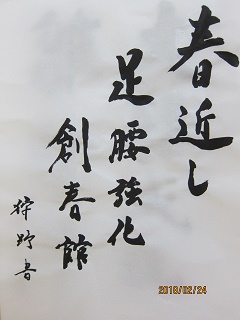 春近し
足腰強化
創春館
狩野書
2018/02/24